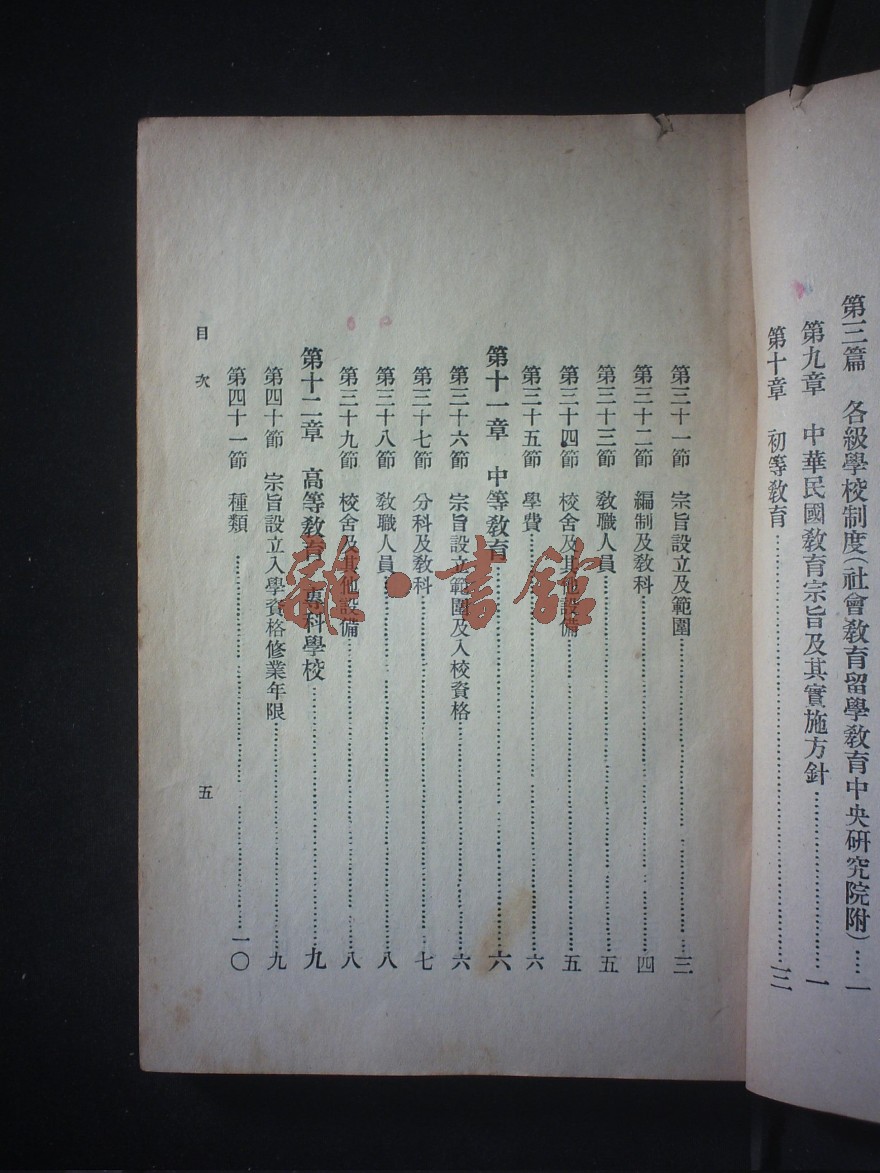 第三篇 各級學校制度(社會教育留學教育中央研究院附)……一
第九章 中華民國教育宗旨及其實施方針……一
第十章 初等教育……三
第三十一節 宗旨設立及範圍……三
第三十二節 編制及教科……四
第三十三節 教職人員……五
第三十四節 校舍及其他設備……五
第三十五節 學費……六
第十一章 中等教育……六
第三十六節 宗旨設立範圍及入校資格……六
第三十七節 分科及教科……七
第三十八節 教職人員……八
第三十九節 校舍及其他設備……八
第十二章 高等教育 專科學校……九
第四十節 宗旨設立入學資格修業年限……九
第四十一節 種類……一〇
目次
五
書館